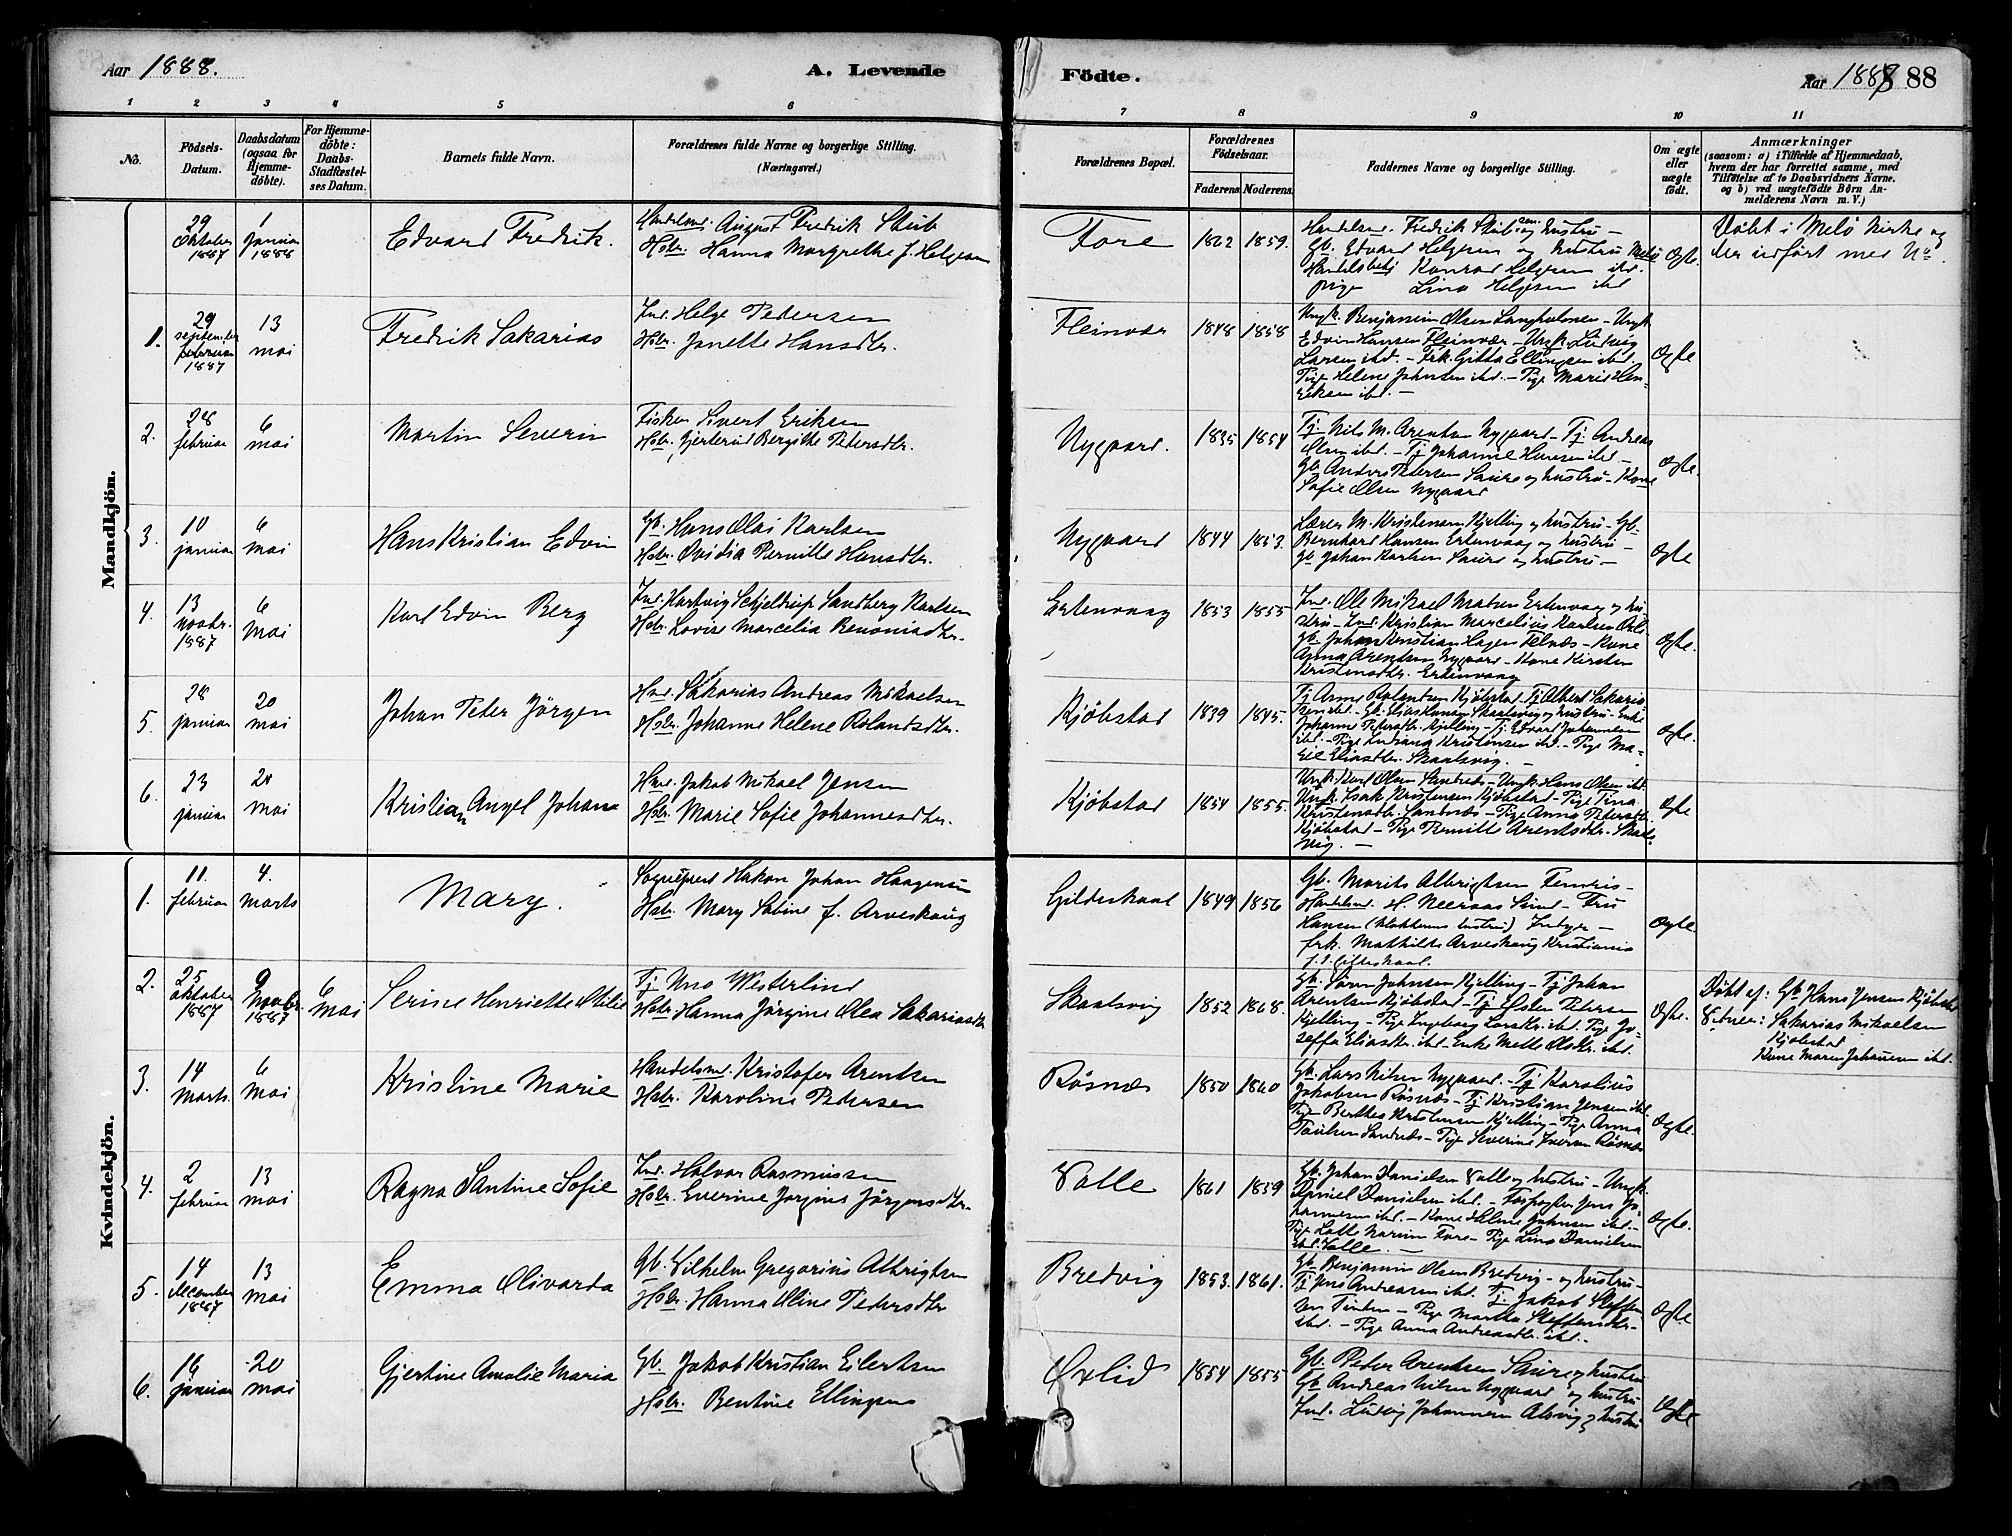 Aar 1888.
A. Levende
Födte.
Aar 1888 88
1 2 3 4 5 6 7 8 9 10 11
No.
Födsels-Datum.
Daabsdatum (ogsaa for Hjemme-döbte).
For Hjemme-döbte: Daabs-Stadfæstel-ses Datum.
Barnets fulde Navn.
Forældrenes fulde Navne og borgerlige Stilling. (Næringsvei.)
Forældrenes Bopæl.
Forældrenes Födselsaar.
Faderens. Moderens.
Faddernes Navne og borgerlige Stilling.
Om ægte eller uægte födt.
Anmærkninger
(saasom: a) i Tilfælde af Hjemmedaab, hvem der har forrettet samme, med Tilföielse af to Daabsvidners Navne, og b) ved uægtefödte Börn An-melderens Navn m. V.)
Mandkjön.
29 Oktober 1887
1 Januar 1888
Edvard Fredrik.
Handelsmd. August Fredrik Stub
Hstr. Hanna Margrethe f. Helgesen
Fore
1862 1859.
Handelsm. Fredrik Stub sen. og hustru –
Gb. Edvard Helgesen og hustru Melö
Handelsbetj Konrad Helgesen ibd.
pige Lina Helgesen ibd
Ægte.
Döbt i Melö Kirke og
der indfört med No.
1.
29 september 1887
13 mai
Fredrik Sakarias
Ind. Helge Pedersen
Hstr. Janette Hansdtr.
Fleinvær
1848 1858
Ungk. Benjamin Olsen Langholmen – Ungk.
Edvin Hansen Fleinvær – Ungk. Ludvig
Larsen ibd. – Frk. Gitta Ellingsen ibd.
Pige Helene Johnsen ibd. – Pige Marie Hen-
riksen ibd. –
Ægte
2.
28 februar
6 mai
Martin Severin
Fisker Sivert Eriksen
Hstr. Gjertrud Bergithe Petersdtr.
Nygaard.
1835 1854
Tj. Nils M. Arentsen Nygaard – Tj. Andreas
Olsen ibd. – Tj Johanne Hansen ibd –
Gb. Anders Petersen Saura og hustru – Kone
Sofie Olsen Nygaard
Ægte.
3.
10 januar
6 mai
Hans Kristian Edvin
Gb. Hans Olai Karlsen
Hstr. Ovidia Pernille Hansdtr.
Nygaard
1844 1853.
Lærer M. Kristensen Kjelling og hustru – Gb.
Bernhard Hansen Ertenvaag og hustru –
Gb Johan Karlsen Saura og hustru –
Ægte
4.
13 novbr. 1887
6 Mai
Karl Edvin Berg
Ind. Hartvig Schjeldrup Sandberg Karlsen
Hstr. Lovise Marcelia Benoniasdtr.
Ertenvaag
1853 1855
Ind. Ole Mikael Matsen Ertenvaag og hu-
stru – Ind. Kristian Marcelius Karlsen
Gb. Johan Kristian Hagen – Kone
Anna Arentsen Nygaard – Kone Kirsten
Kristensdtr. Ertenvaag
Ægte.
5.
28 januar
20 mai
Johan Peter Jörgen
Hmd. Sakarias Andreas Mikaelsen
Hstr. Johanne Helene Rolandsdtr.
Kjöbstad
1839 1845.
Tj. Arne Rolandsen Kjöbstad. Tj. Albert Sakaria-
sen ibd. Gb. Elias Hansen Skaalsvig og hustru – Enke
Johanne Petersdtr. Kjelling – Tj. Edvard Johannesen
ibd. – Pige Kristensen ibd. – Pige Ma-
rie Eliasdtr. Skaalsvig. –
Ægte.
6.
23 januar
20 mai
Kristian Angel Johan
Hmd. Jakob Mikael Jensen
Hstr. Marie Sofie Johannesdtr.
Kjöbstad
1854 1855.
Ungk. Karl Olsen Sandnes – Ungk. Hans Olsen ibd.
Ungk. Isak Kristensen Kjöbstad – Pige Trina
Kristensdtr. Sandnes – Pige Anna Petersdtr.
Kjöbstad – Pige Pernille Arentsdtr. Skaals-
vig. –
Ægte
Kvindekjön.
1.
11. februar
4. Marts
Mary.
Sogneprest Hakon Johan Haagensen
Hstr. Mary Sabine f. Arveskoug
Gildeskaal
1849 1856
Gb. Marits Albrigtsen Fendris –
Handelsmd. H. Neeraas Sund – Fru
Hansen (klokkerens hustru) Inby –
frk. Mathilde Arveskoug Kristiania
f.t. Gildeskaal.
Ægte
2.
25 Oktober 1887
9 Novbr. 1887
6 Mai
Serine Henriette Otilie
Tj Uno Westerlind
Hstr. Hanna Jörgine Olea Sakariasdtr
Skaalsvig
1852 1868.
Gb. Sören Johnsen Kjelling – Tj Johan
Arentsen Kjöbstad – Tj Petersen
Kjelling – Pige Ingeborg Larsdtr. ibd. Pige Jo-
seffa Eliasdtr. ibd. Enke Mette Olsdtr. ibd.
Ægte.
Döbt af: Gb. Hans Jensen Kjöbstad
Vidner: Sakarias Mikaelsen
Kjöbstad
Kone Maren Johansen ibd.
3.
14 Marts.
6 Mai
Kristine Marie
Handelsmd. Kristofer Arentsen
Hstr. Karoline Pedersen
Rösnæs
1850 1860
Gb. Lars Nilsen Nygaard. – Tj. Karolius
Jakobsen Rösnæs – Tj Kristian Jensen ibd.
Pige Berthea Kristensen Kjelling – Pige Anna
Paulsen Sandnes – Pige Severine Iversen Rösnæs
Ægte.
4.
2 februar
13 mai
Ragna Santine Sofie
Ind. Halvor Rasmussen
Hstr. Everine Jörgine Jörgensdtr.
Valle
1861 1859
Gb. Johan Danielsen Valle og hustru – Ungk.
Daniel Danielsen ibd. – Jens Jo-
hannesen ibd. – Kone Heline Johnsen ibd. –
Pige Lotte Fore – Pige Lina Danielsen
ibd. Valle. –
Ægte.
5.
14 december 1887
13 mai
Emma Olivarda
Gb. Vilhelm Gregorius Albrigtsen
Hstr. Hanna Oline Pedersdtr
Bredvig
1853. 1861.
Gb. Benjamin Olsen Bredvig – og hustru –
Tj Jens Andreasen ibd. Tj. Jakob Steffen-
sen – Pige Martha Steffensdtr.
ibd. – Pige Anna Andreasdtr. ibd. –
Ægte.
6.
16 januar
20 mai
Gjertine Amalie Maria
Gb. Jakob Kristian Eilertsen
Hstr. Bentine Ellingsen
Oxlid
1854 1855
Gb. Peder Arentsen Saura og hustru
Gb Andreas Nilsen Nygaard og hustru
Ind. Ludvig Johannesen Alsvig og hustru
Ægte